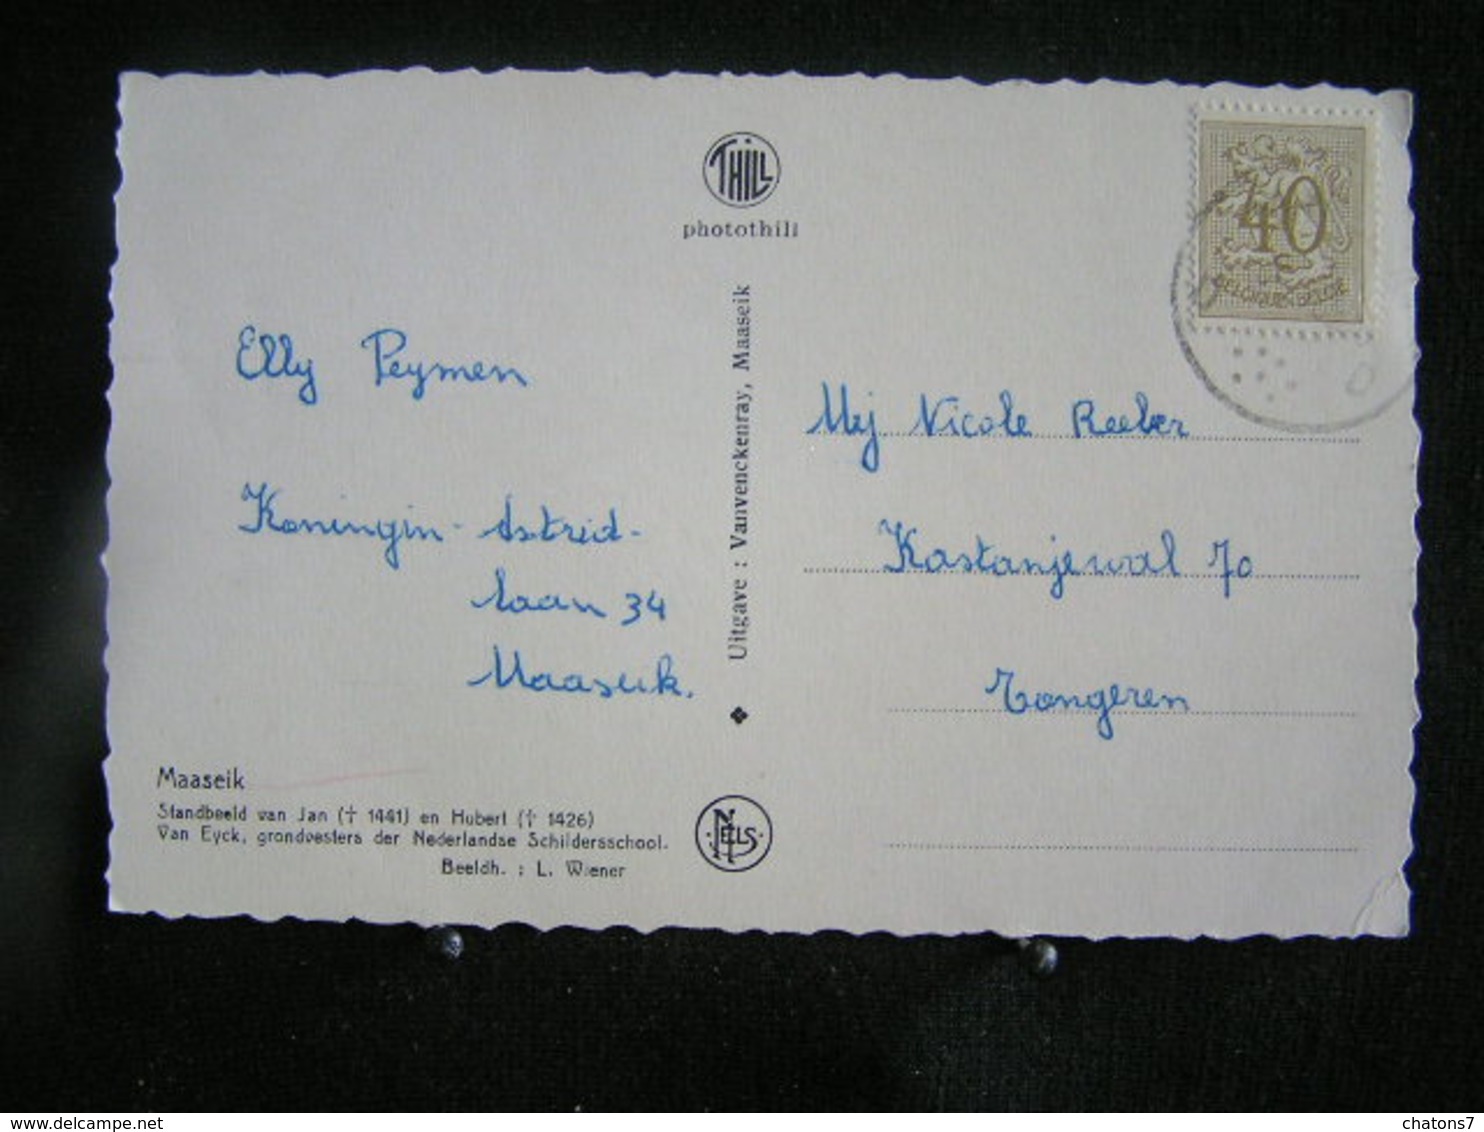 THILL
photothill
40
BELGIQUE BELGIE
Elly Peymen
Koningin-Astrid-
laan 34
Maaseik.
Uitgave : Vanvenckenray, Maaseik
Mej Nicole Reeber
Kastanjewal 70
Tongeren
Maaseik
Standbeeld van Jan († 1441) en Hubert († 1426)
Van Eyck, grondvesters der Nederlandse Schildersschool.
Beeldh. : L. Wiener
NELS
delcampe.net
chatons7